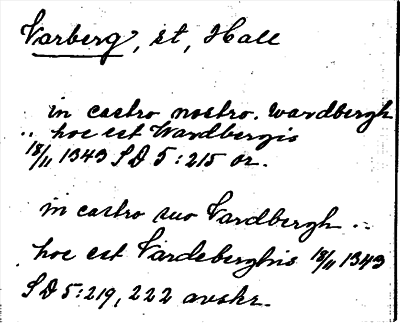 Varberg, st, Hall
in castro nostro. wardbergh
.. hoc est Wardbergis
18/11 1343 SD 5:215 or.
in castro suo Vardbergh ..
hoc est Vardeberghis 18/11 1343
SD 5:219, 222 avskr.